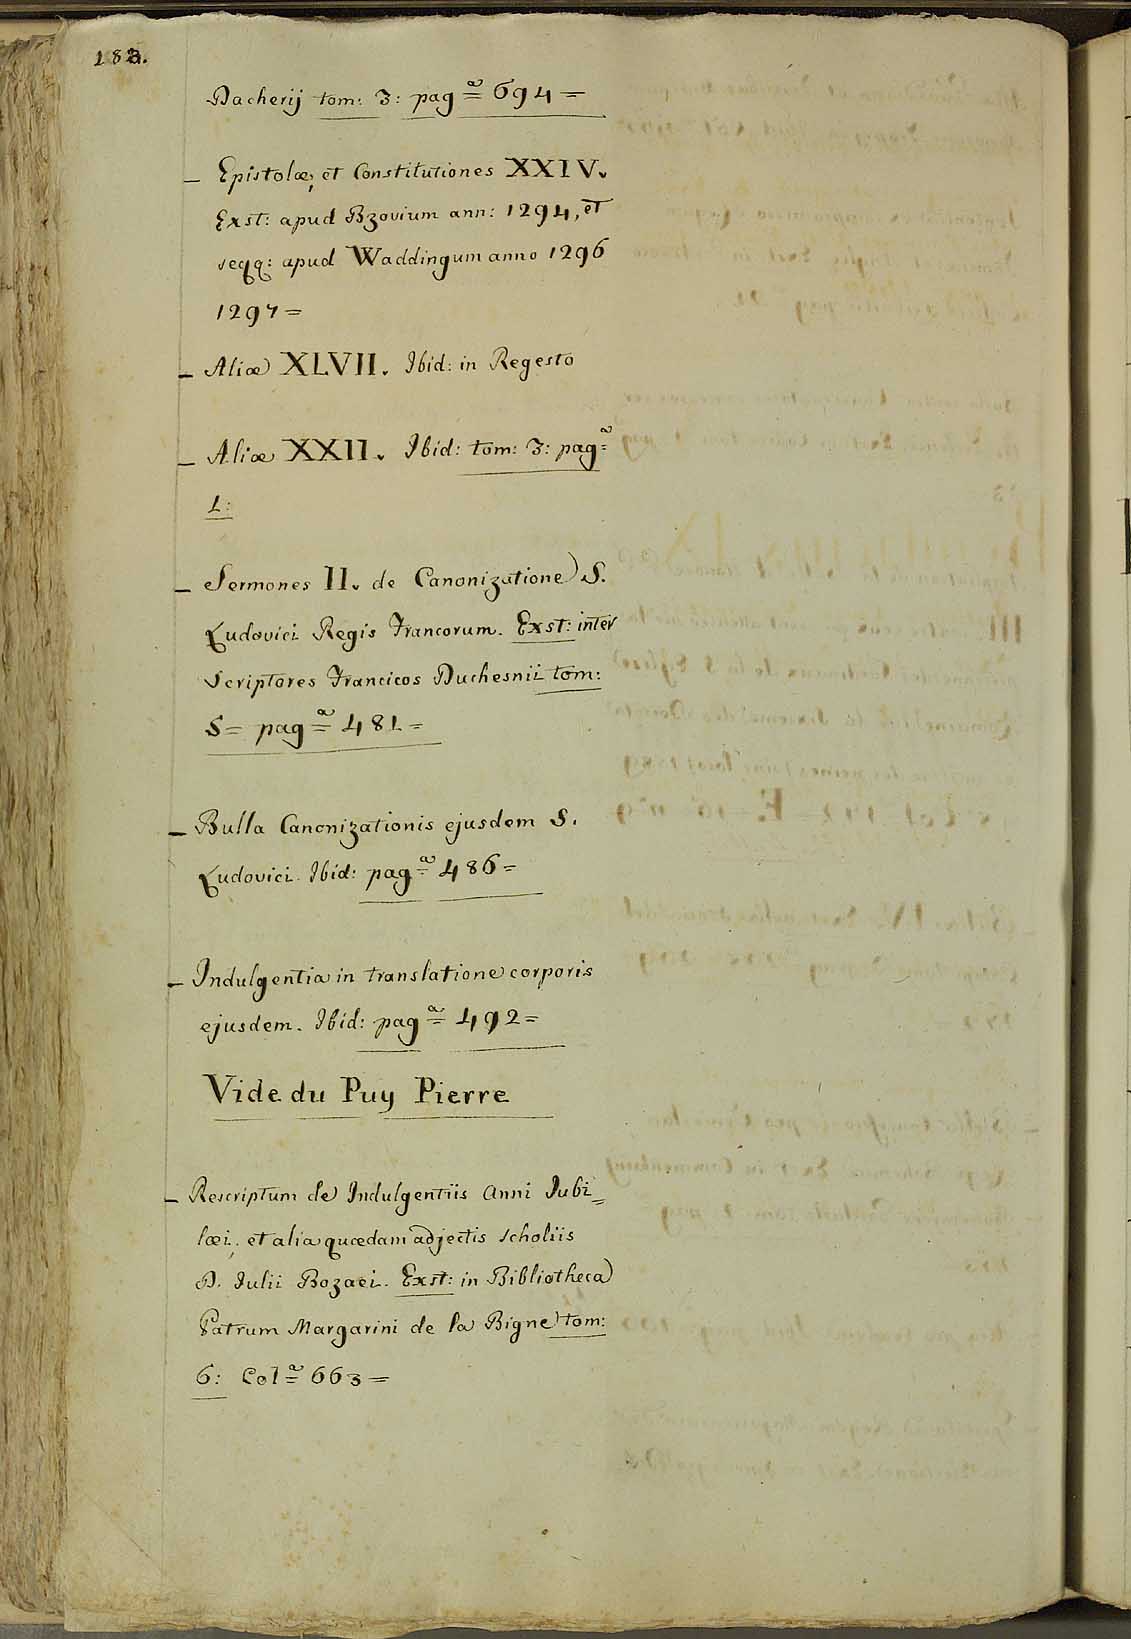 182.
Dacherij tom: 3: pagᵃ 694 =
– Epistolæ, et Constitutiones XXIV.
Exst: apud Bzovium ann: 1294, et
seqq: apud Waddingum anno 1296
1297 =
– Aliæ XLVII. Ibid: in Regesto
– Aliæ XXII. Ibid: tom: 3: pagᵃ
1:
– Sermones II. de Canonizatione S.
Ludovici Regis Francorum. Exst: inter
Scriptores Francicos Duchesnii tom:
5 = pagᵃ 481 =
– Bulla Canonizationis ejusdem S.
Ludovici. Ibid: pagᵃ 486 =
– Indulgentia in translatione corporis
ejusdem. Ibid: pagᵃ 492 =
Vide du Puy Pierre
– Rescriptum de Indulgentiis Anni Jubi=
læi, et alia quædam adjectis scholiis
D. Julii Bozaei. Exst: in Bibliotheca
Patrum Margarini de la Bigne tom:
6: Colᵃ 663 =